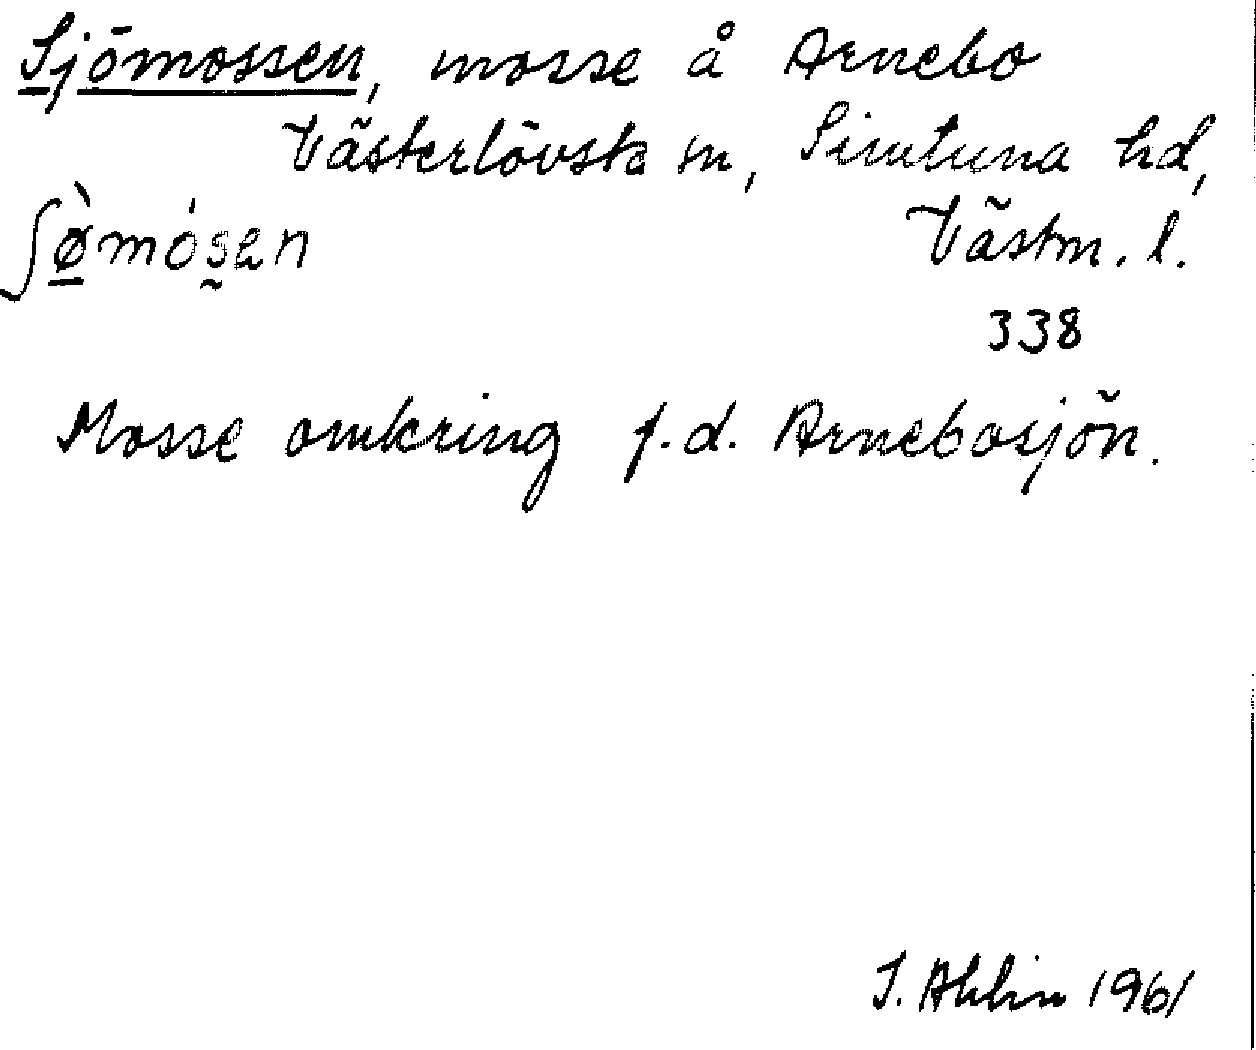 Sjömossen, mosse å Arnebo
Västerlövsta sn, Simtuna hd,
ʃø̀mósen Västm. l.
338
Mosse omkring f.d. Arnebosjön.
I. Ahlin 1961